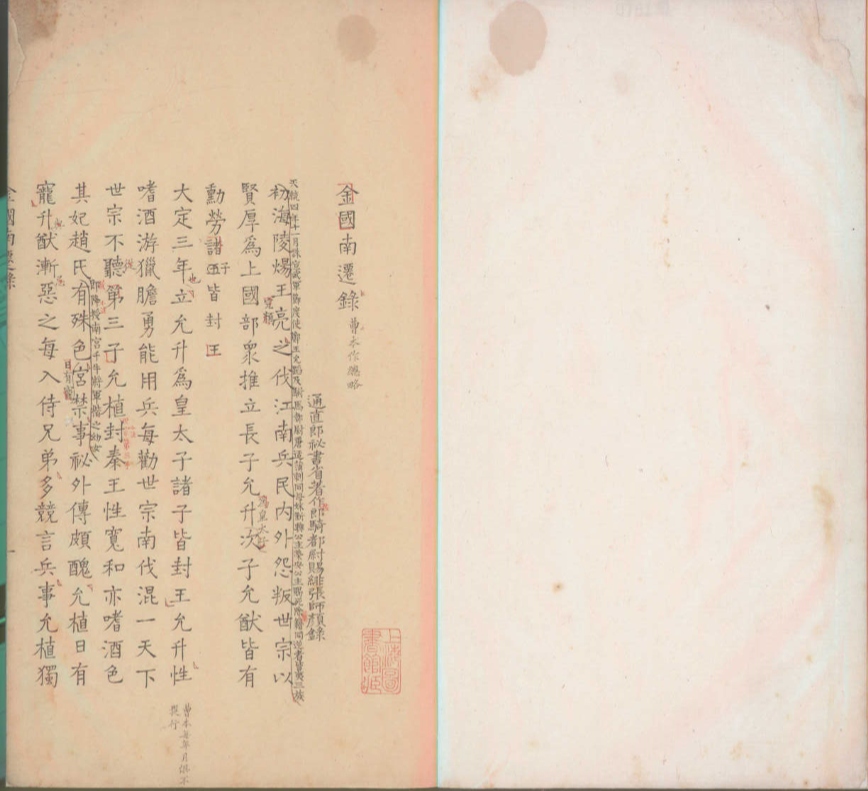 金國南遷錄
曹本作總略
通直郎祕書省著作郎騎都尉賜緋張師顏錄
初海陵煬王亮之伐江南兵民内外怨叛世宗以
賢厚爲上國部衆推立長子允升次子允猷皆有
勳勞諸子皆封王
大定三年立允升爲皇太子諸子皆封王允升性
嗜酒游獵膽勇能用兵每勸世宗南伐混一天下
世宗不聽第三子允植封秦王性寬和亦嗜酒色
其妃趙氏有殊色宮禁事祕外傳頗醜允植日有
寵升猷漸惡之每入侍兄弟多競言兵事允植獨
爲皇太子
曹本每年月俱不
提行
金國南遷錄
一